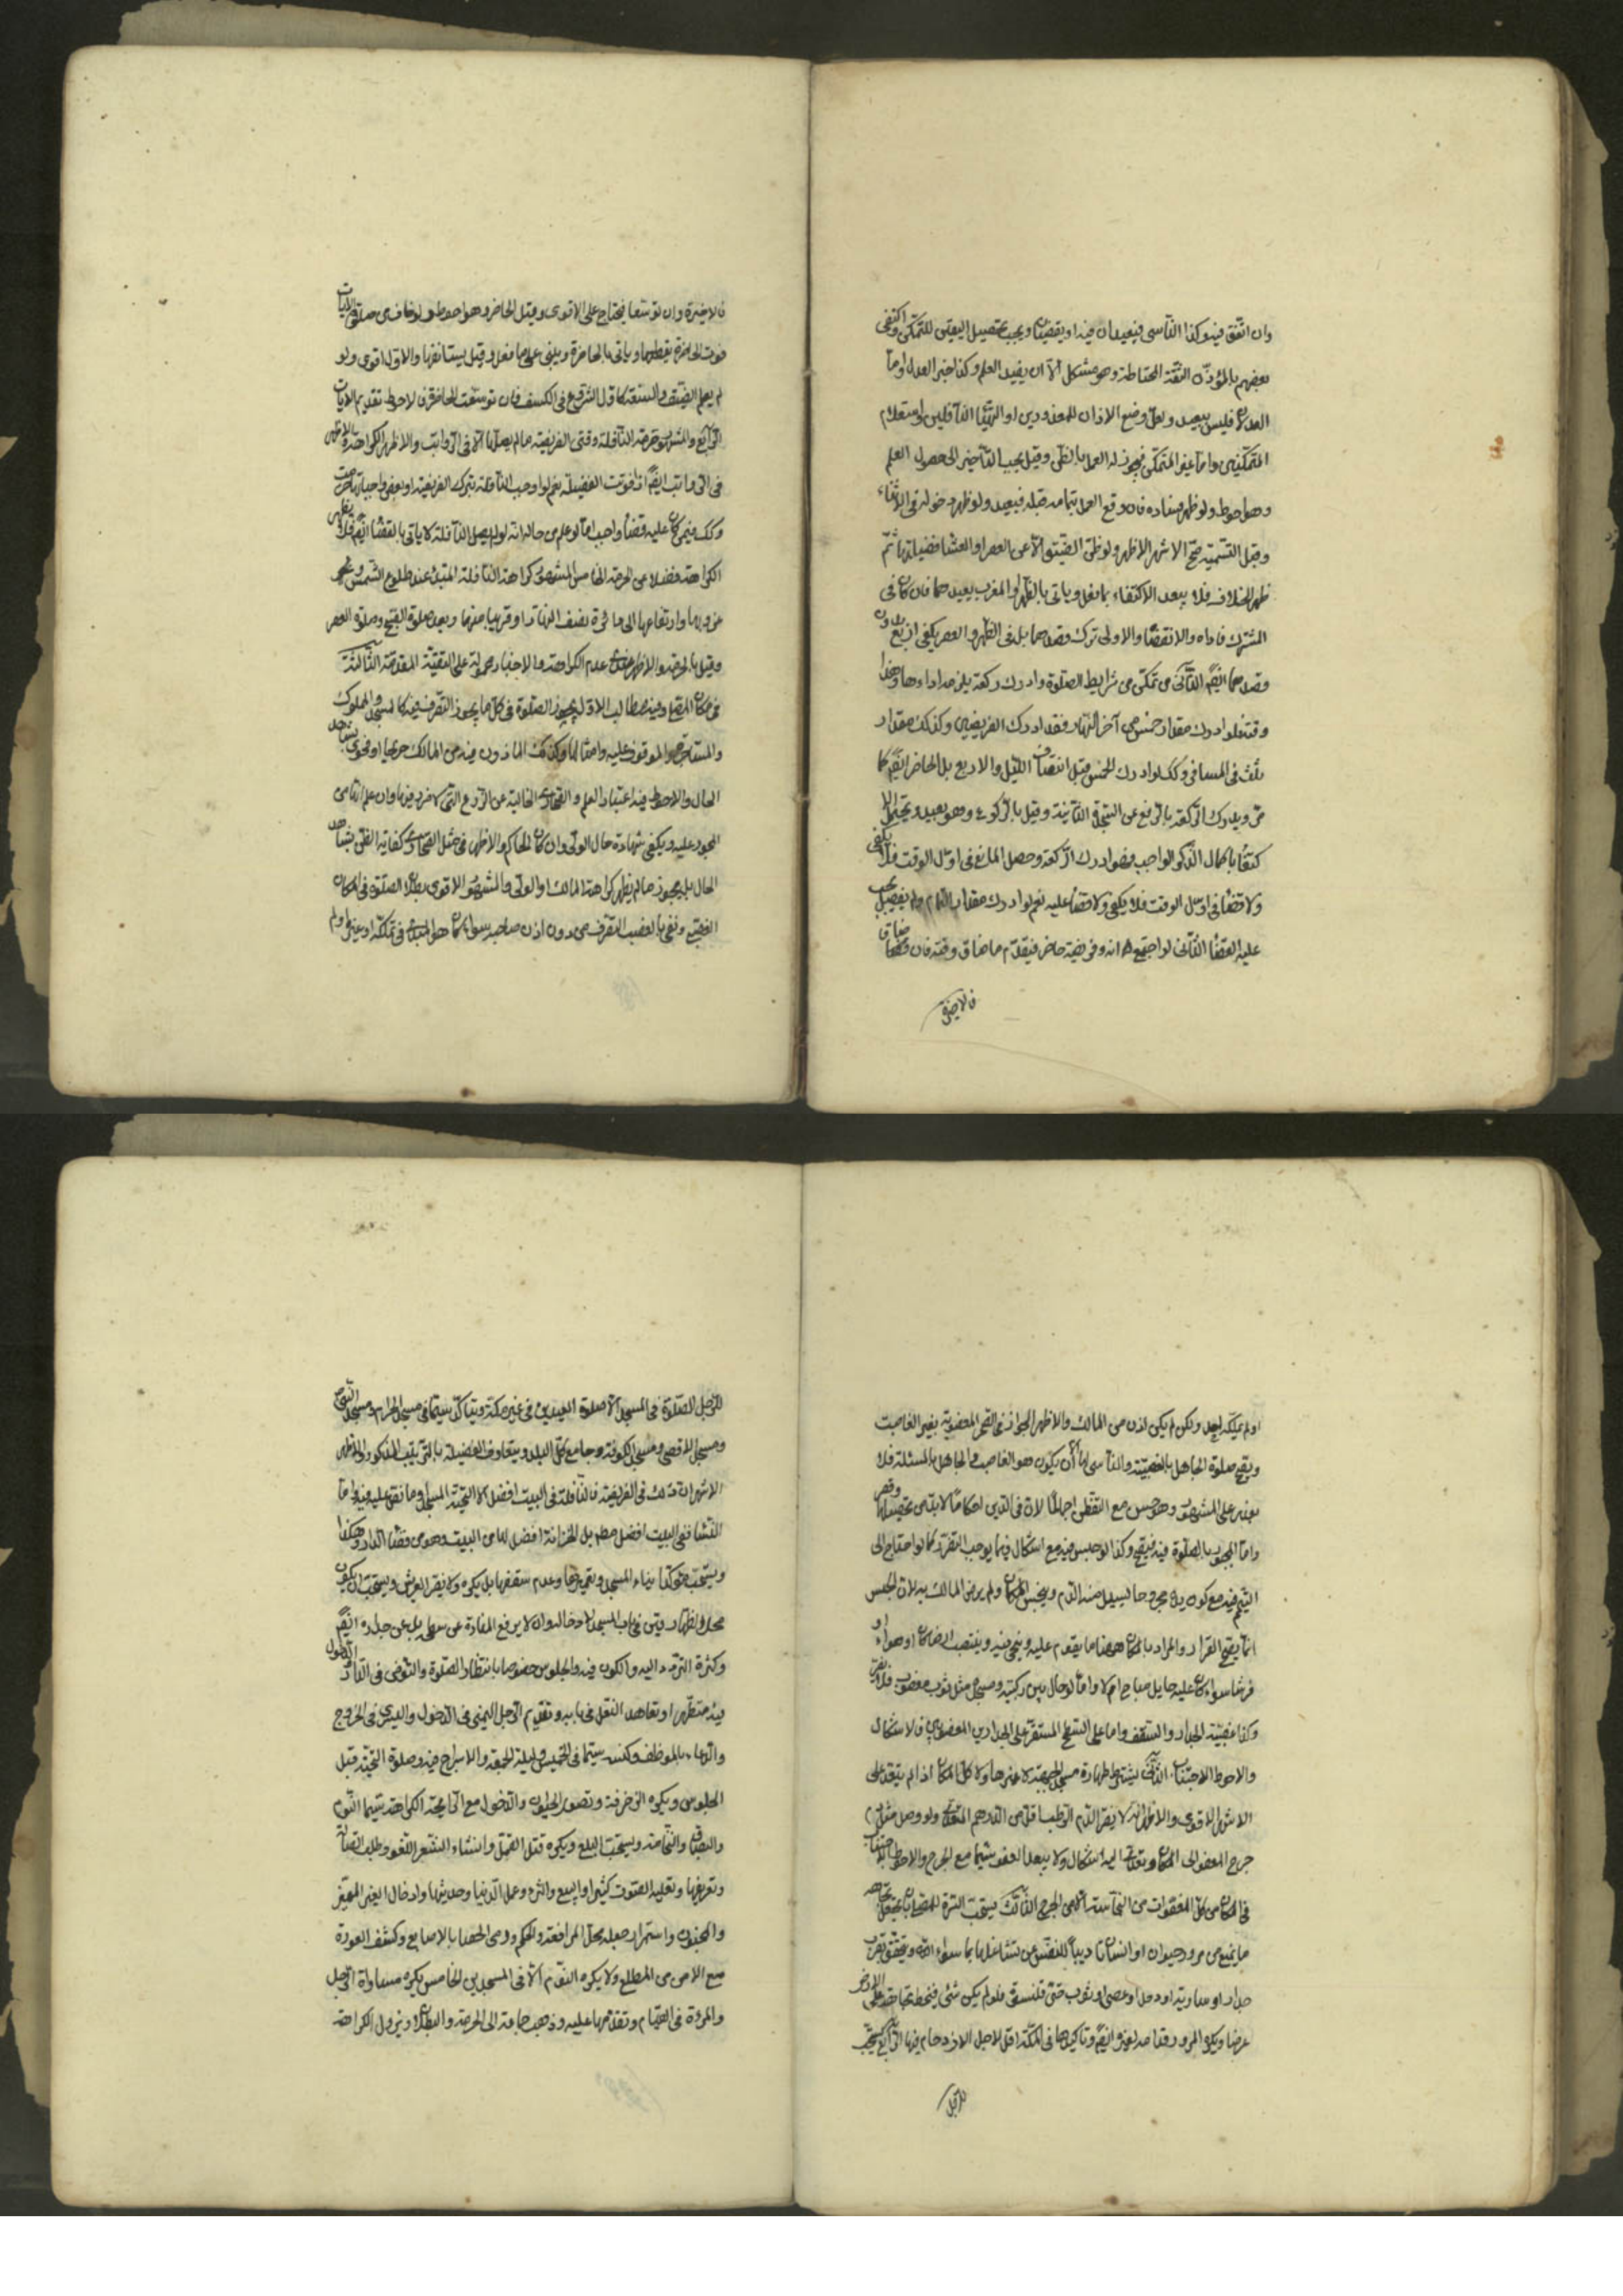 وان اتفق فيه وكذا الناسى فيعيدان فيه او يقضيان ويجب تحصيل اليقين للتمكن واكتفى
بعضهم بالمؤذن الثقة المحتاطة وهو مشكل الا ان يفيد العلم وكذا خبر العدل واما
العدلان فليس ببعيد ولعل وضع الاذان للمعذورين او لتهيئا الغافلين واستعلام
المتمكنين واما غير المتمكن فيجوز له العمل بالظن وقيل يجب التأخير الى حصول العلم
وهو احوط ولو ظهر فساده فان وقع العمل بتمامه قبله فيعيد ولو ظهر دخوله فى الاثناء
وقبل التسمية صح الاشهر الاظهر ولو ظن الضيق الا عن العصر او العشا فضيلة ثم
ظهر الخلاف فلا يبعد الاكتفاء بما فعل وياتى بالظهر او المغرب بعيدهما فان كان فى
المشترك فاداء والا فقضاء والاولى ترك قصدهما بل فى الظهر والعصر يكفى اربع بدون
قصدهما ايضا الثانى من تمكن من شرايط الصلوة وادرك ركعة يلزمه اداءها وهذا
وقته فلو ادرك مقدار خمس من آخر النهار فقد ادرك الفريضين وكذلك مقدار
ثلث فى المسافر وكك لو ادرك الخمس قبل انتصاف الليل والاربع بل الحاضر ايضا كما
مر ويدرك الركعة بالرفع عن السجدة الثانية وقيل بالركوع وهو بعيد ويحتمل الا
كتفا باكمال الذكر الواجب فهو ادرك الركعة وحصل المانع فى اول الوقت فلا يكفى
ولا قضا فى اول الوقت فلا يكفى ولا قضا عليه نعم لو ادرك مقدار التمام ولم يفعل يجب
عليه القضا الثالث لو اجتمع اداء وفريضة حاضر فيقدم ما ضاق وقته فان ضاقا
فالاخيرة
فالاخيرة وان توسعا يختار على الاقوى وقيل الحاضر وهو احوط ولو خاف من صلوة الايات
فوت الحاضرة يقطعها وياتى بالحاضرة ويبنى على ما فعل وقيل يستانفها والاول اقوى ولو
لم يعلم الضيق والسعة كاول الشروع فى الكسف فان توسعت الحاضرة فالاحوط تقديم الايات
الرابع والمشهور حرمة النافلة وقتى الفريضة مالم يصلها الا فى الرواتب والاظهر الكراهة والاظهر
فى الرواتب ايضا اذا فوتت الفضيلة نعم لو اوجب النافلة بترك الفريضة او بعض واجباتها حرمت
وكك فيمن كان عليه قضا واجب اما لو علم من حاله انه لو لم يصل النافلة لا ياتى بالقضا ايضا فلا يظهر
الكراهة فضلا عن الحرمة الخامس المشهور كراهة النافلة المبتدئة عند طلوع الشمس ونحو
غروبها وارتفاعها الى دائرة نصف النهار او قريبا منها وبعد صلوة الصبح وصلوة العصر
وقيل بالحرمة والاظهر عدم الكراهة والاخبار محمولة على التقية المقدمة الثالثة
فى مكان المصلى وفيه مطالب الاول يجوز الصلوة فى كل ما يجوز التصرف فيه كالمسجد والمملوك
والمستاجر والموقوف عليه وامثالها وكذلك الماذون فيه من المالك صريحا او فحوى او بشاهد
الحال والاحوط فيه اعتبار العلم والصحارى الخالية عن الزرع التى لا ضرر فيها وان علم انها من
المحجور عليه ويكفى شهادة حال الولى وان كان الحاكم والاظهر فى مثل الصحارى كفاية الظن بشاهد
الحال بل يجوز مالم يظهر كراهة المالك او الولى والمشهور الاقوى بطلان الصلوة فى المكان
الغصبى ونعنى بالغصب التصرف من دون اذن صاحبه سواء كان هو المبدء فى تملكه او غيره ولم
او لم يملكه احد ولكن لم يكن اذن من المالك والاظهر الجواز فى الصحرى المغصوبة بغير الغاصب
ويصح صلوة الجاهل بالغصبية والناسى لها الا ان يكون هو الغاصب والجاهل بالمسئلة فلا
يعذر على المشهور وهو حسن مع التفطن اجمالا لان فى الدين احكاما لابد من تحصيلها وقصر
واما المحبوس بالصلوة فيه فيصح وكذا لو حبس فيه مع اشكال فيما يوجب التصرف كما لو احتاج الى
التيمم فيه مع كون يده مجروحا ليسيل منه الدم وينجس المكان ولم يرض المالك به لان الحبس
انما يصح القرار والمراد بالمكان ههنا ما يقوم عليه وينحنى فيه وينتصب ارضا كان او هواء او
فرشا سواء كان عليه حايل مباح ام لا واما لو حال بين ركبتيه ومسجده مثل ثوب مغصوب فلا يضر
وكذا غصبية الجدار والسقف واما على السطح المستقر على الجدارين المغصوبين فلا اشكال
والاحوط الاجتناب الثانى يشترط طهارة مسجد الجبهة لا غيرها ولا كل المكان اذا لم يتعد على
الاشهر الاقوى والاظهر انه لا يضر الدم الرطب اقل من الدرهم المتعدى ولو وصل مثل دم
جرح المعفو الى المكان وتعدى اليه اشكال ولا يبعد العفو سيما مع الحرج والاحوط الاجتناب
فى المكان من كل المعفوات من النجاسة الا من الحرج الثالث يستحب السترة للمصلى بان يجعل تجاهه
ما يمنع من مرور حيوان او انسان تاديبا للنفس عن تشاغلها بما سواء الله ويتحقق بقرب
جدار او سارية او رحل او عصى او ثوب حتى قلنسوة فلو لم يكن شئ فيخط تجاهه على الارض
عرضا ويكره المرور قدامه لغيره ايضا وتاكيدها فى مكة اقل لاجل الازدحام فيها الرابع يستحب
للرجل
للرجل الصلوة فى المسجد الا صلوة العيدين فى غير مكة ويتاكد سيما فى مسجد الحرام ومسجد النبى ص
ومسجد الاقصى ومسجد الكوفة وجامع كل البلد ويتفاوت الفضيلة بالترتيب المذكور والاظهر
الاشهر ان ذلك فى الفريضة فالنافلة فى البيت افضل الا التحية المسجد وما نص عليه فيه واما
النساء ففى البيت افضل مطم بل الخزانة افضل لها من البيت وهو من فضا الدار وهكذا
ويستحب مؤكدا بناء المسجد وتعميرها وعدم سقفها بل يكره ولا يضر العريش ويستحب ان يكون
وكثرة التردد اليه والكون فيه والجلوس خصوصا بانتظار الصلوة والتوضى فى الدار والدخول
فيه متطهرا وتعاهد النعل فى بابه وتقديم الرجل اليمنى فى الدخول واليسرى فى الخروج
والدعاء بالموظف وكنسه سيما فى الخميس وليلة الجمعة والاسراج فيه وصلوة التحية قبل
الجلوس ويكره الزخرفة وتصوير الحيطان والدخول مع الرايحة الكراهة سيما الثوم
والبصاق والنخامة ويستحب البلع ويكره قتل القمل وانشاء الشعر اللغو وطلب الضالة
وتعريفها وتعليه الصوت كثيرا والبيع والشرء وعمل الدنيا وحديثها وادخال الغير المميز
والمجنون واستمرار جعله محل المرافعة والحكم ورمى الحصا بالاصابع وكشف العورة
مع الامن من المطلع ولا يكره النوم الا فى المسجدين الخامس يكره مساواة الرجل
والمرءة فى القيام وتقدمها عليه وذهب جماعة الى الحرمة والبطلان ويزول الكراهة